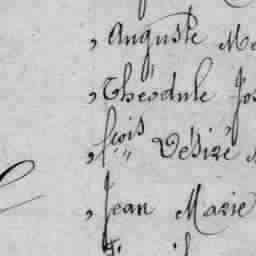 , Auguste
, Théodule
, fçois Désiré
, Jean Marie